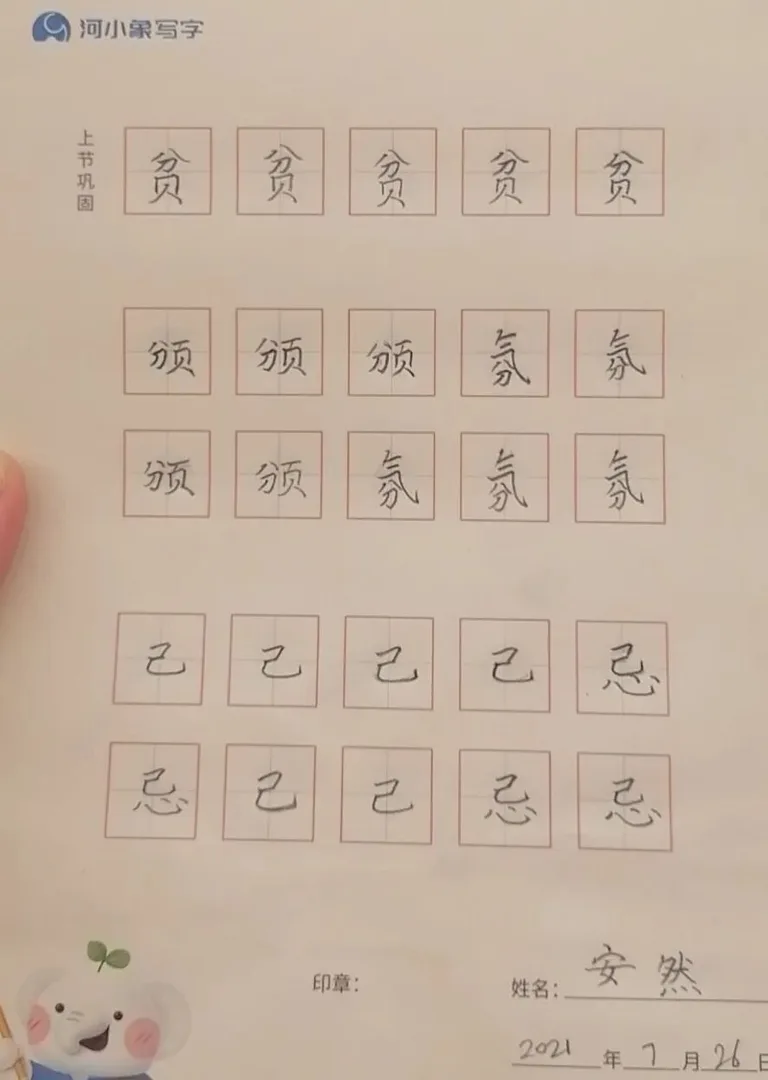 河小象写字
上节巩固
贫 贫 贫 贫 贫
颁 颁 颁 氛 氛
颁 颁 氛 氛 氛
己 己 己 己 忌
忌 己 己 忌 忌
印章：
姓名：安然
2021年7月26日